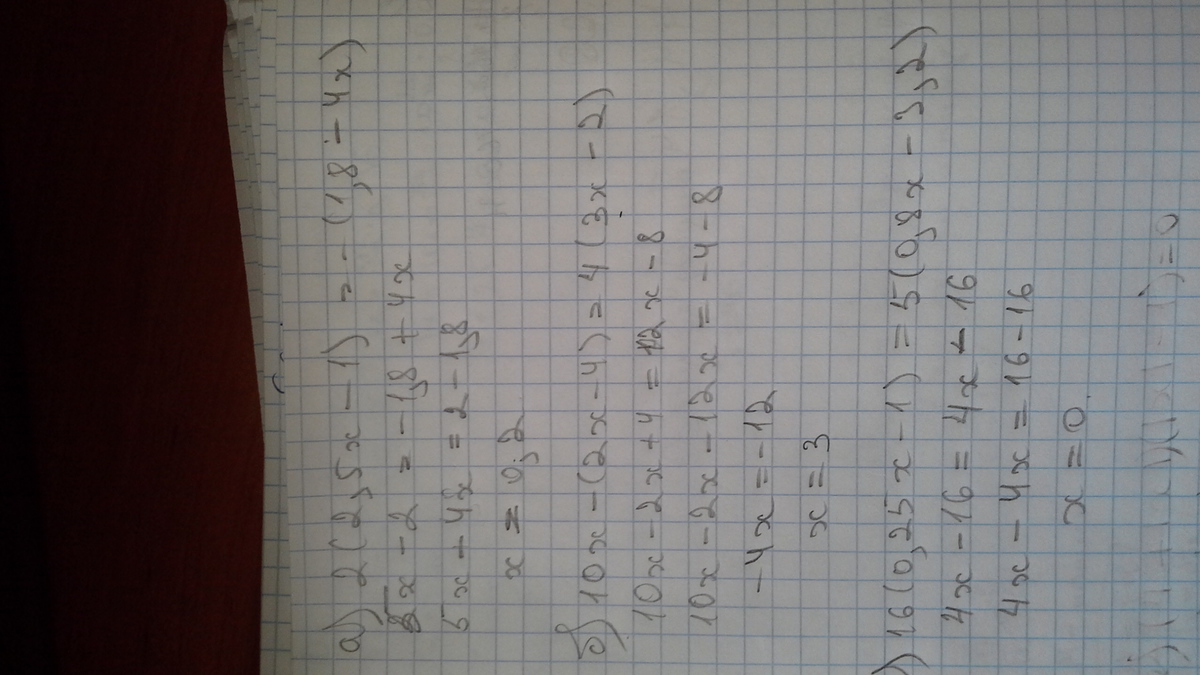 а) 2(2,5x - 1) = - (1,8 - 4x)
5x - 2 = - 1,8 + 4x
5x - 4x = 2 - 1,8
x = 0,2
б) 10x - (2x - 4) = 4(3x - 2)
10x - 2x + 4 = 12x - 8
10x - 2x - 12x = -4 - 8
-4x = -12
x = 3
) 16(0,25x - 1) = 5(0,8x - 3,2)
4x - 16 = 4x - 16
4x - 4x = 16 - 16
x = 0
= 0